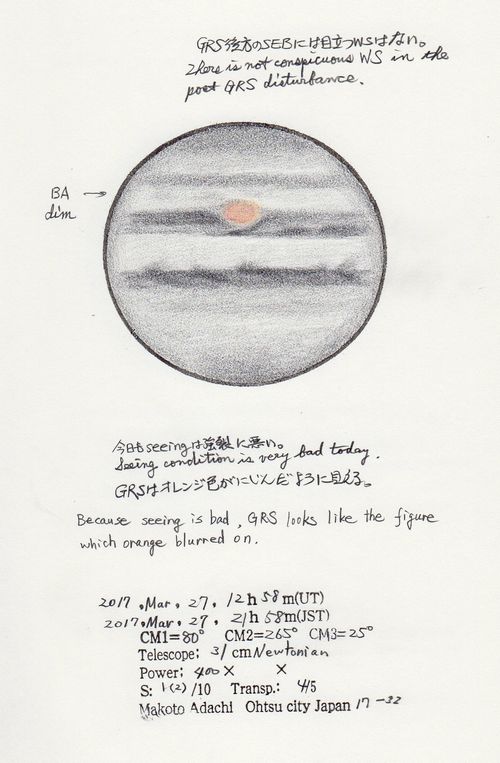 GRS後方のSEBには目立つWSはない。
There is not conspicuous WS in the
post GRS disturbance.
BA →
dim
今日もseeingは強製に悪い。
Seeing condition is very bad today.
GRSはオレンジ色がにじんだように見える。
Because seeing is bad, GRS looks like the figure
which orange blurred on.
2017.Mar. 27. 12h 58m(UT)
2017.Mar. 27. 21h 58m(JST)
CM1=80° CM2=265° CM3=25°
Telescope: 31 cm Newtonian
Power: 400× ×
S: 1(2) /10 Transp.: 4/5
Makoto Adachi Ohtsu city Japan 17-32